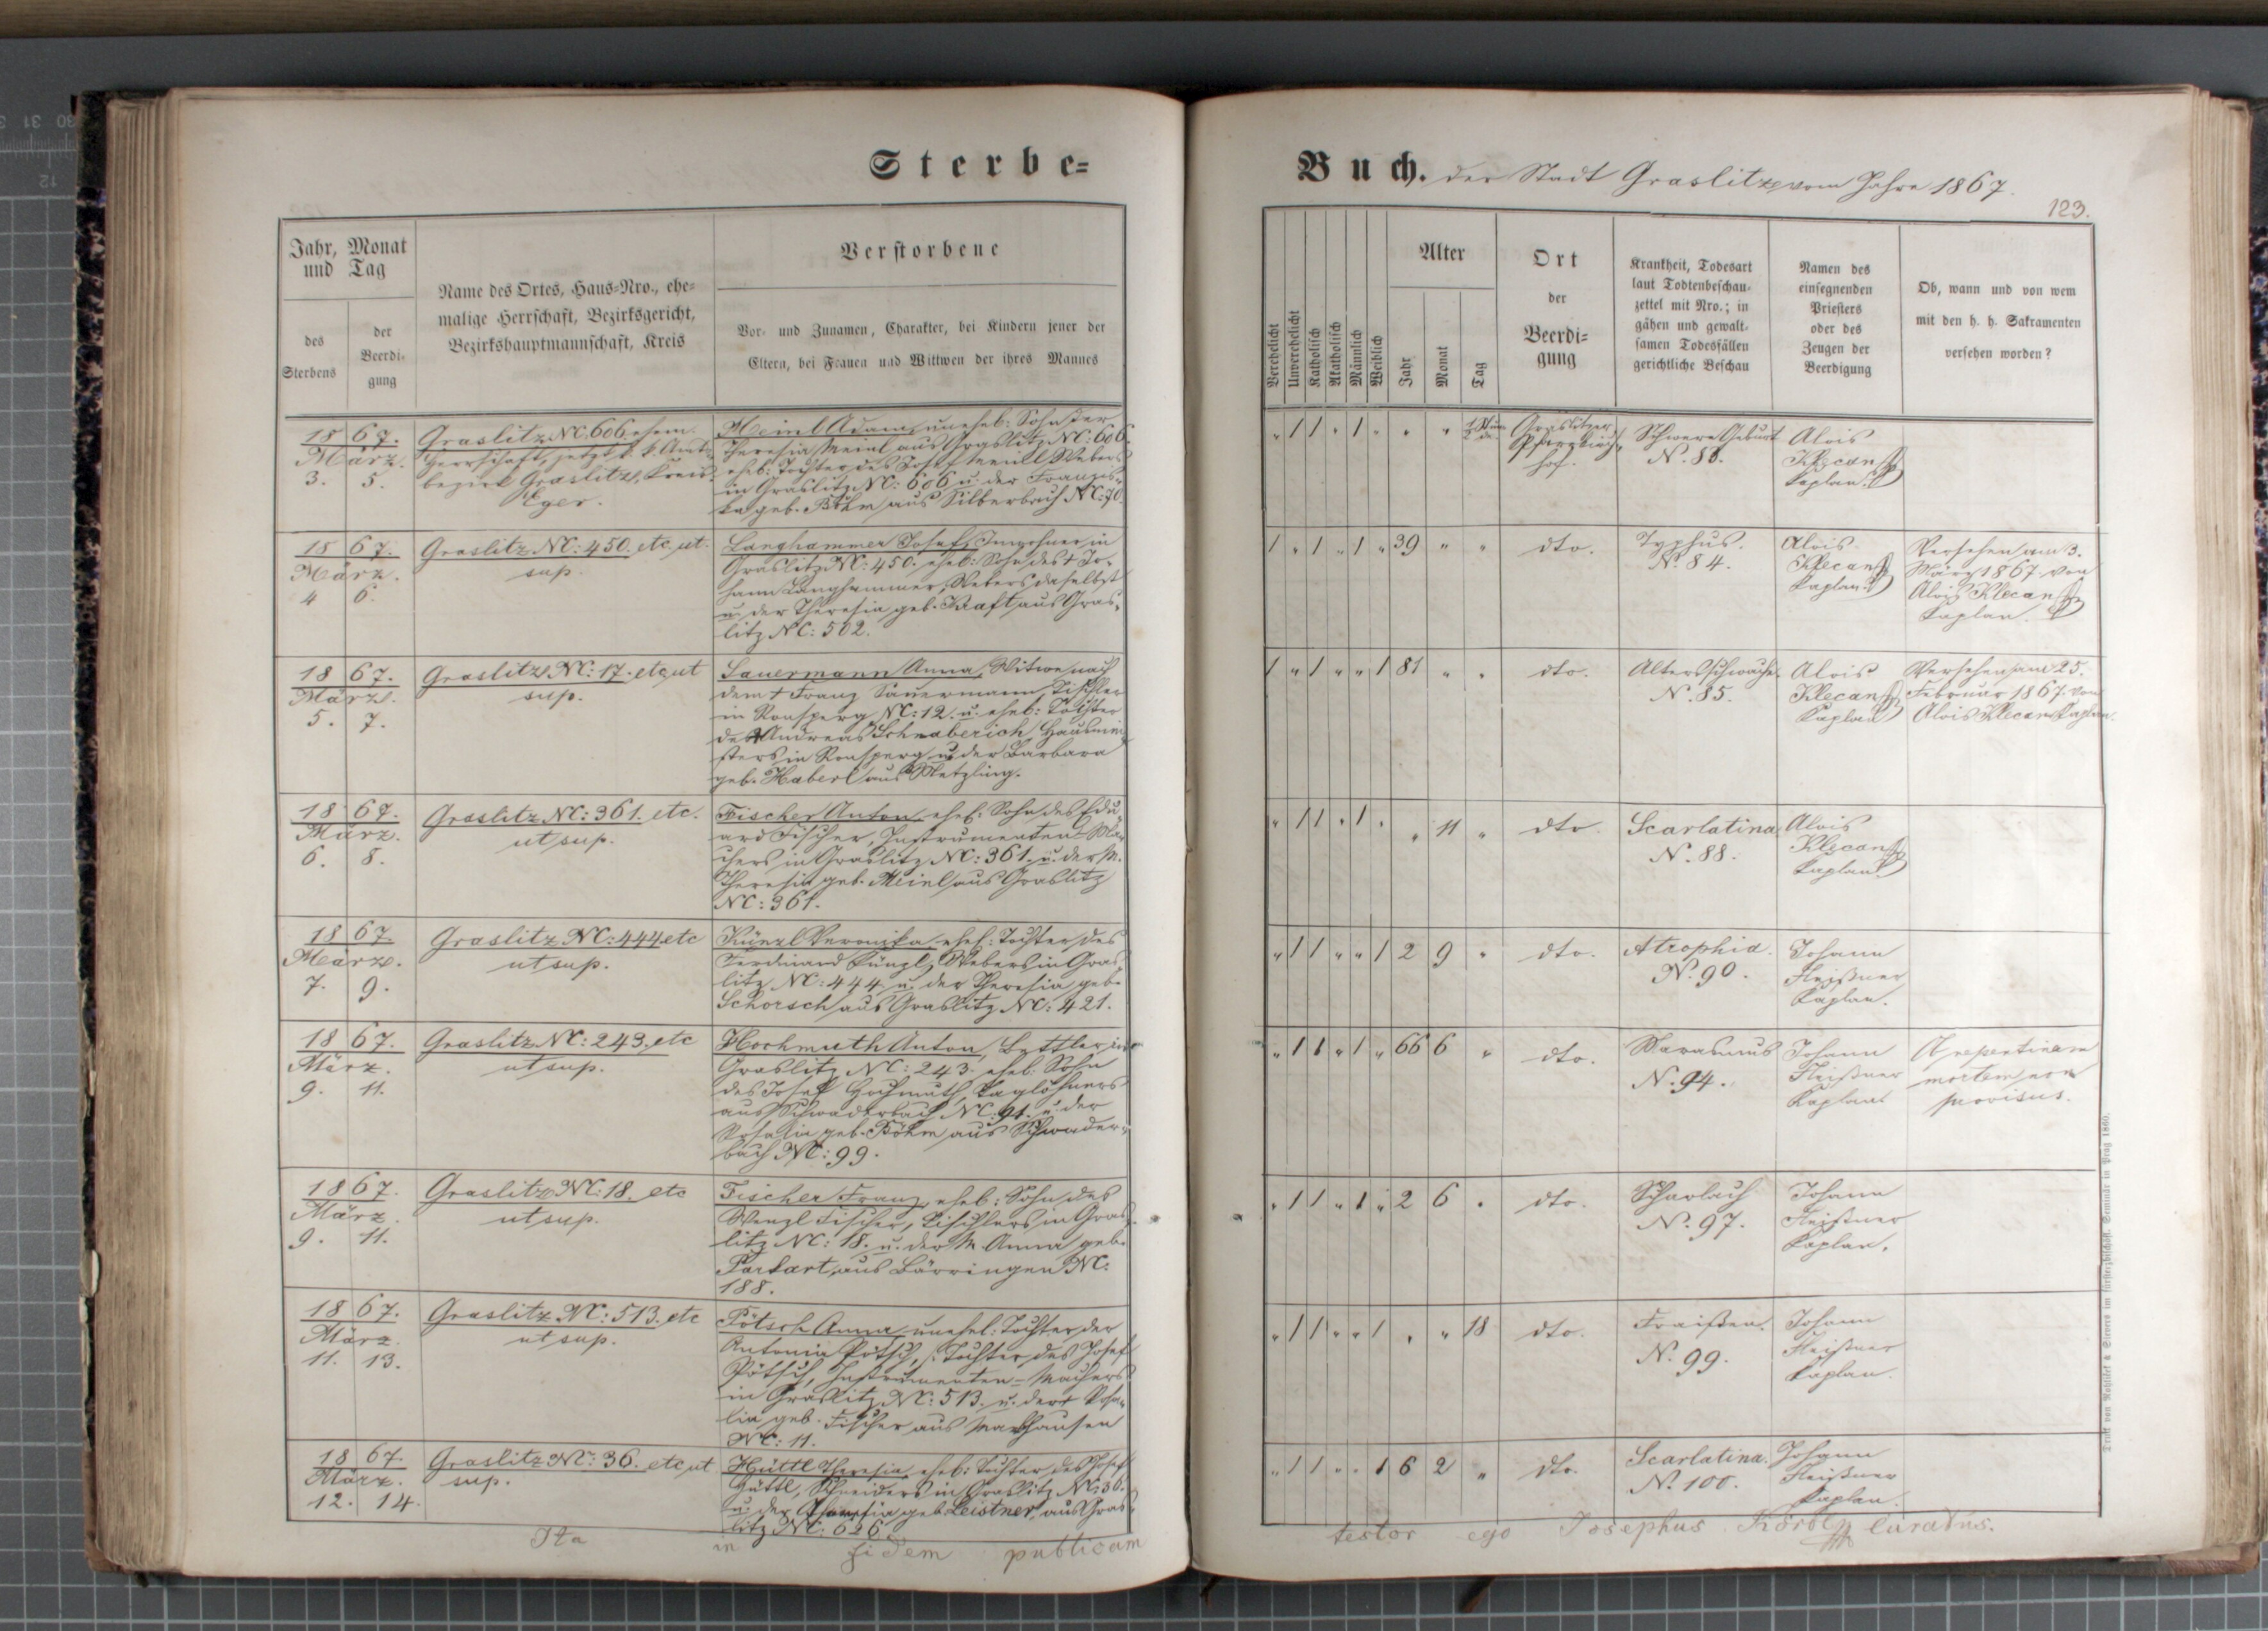 Sterbe=
Buch. der Stadt Graslitz vom Jahre 1867.
123.
Jahr, Monat
und Tag
des
Sterbens
der
Beerdi-
gung
Name des Ortes, Haus-Nro., ehe-
malige Herrschaft, Bezirksgericht,
Bezirkshauptmannschaft, Kreis
Verstorbene
Vor- und Zunamen, Charakter, bei Kindern jener der
Eltern, bei Frauen und Wittwen der ihres Mannes
Verehelicht
Unverehelicht
Katholisch
Akatholisch
Männlich
Weiblich
Alter
Jahr
Monat
Tag
Ort
der
Beerdi-
gung
Krankheit, Todesart
laut Todtenbeschau-
zettel mit Nro.; in
gähen und gewalt-
samen Todesfällen
gerichtliche Beschau
Namen des
einsegnenden
Priesters
oder des
Zeugen der
Beerdigung
Ob, wann und von wem
mit den h. h. Sakramenten
versehen worden?
1867.
März.
3. 5.
Graslitz NC. 606 ehem.
Herrschaft, jetzt k. k. Amts
bezirk Graslitz, Kreis
Eger.
Meinl Adam, unehel: Sohn der
Theresia Meinl aus Graslitz NC: 606
ehel: Tochter des Josef Meinl Webers
in Graslitz NC: 606 u. der Franzis-
ka geb. Böhm aus Silberbach NC: 70.
" 1 1 " 1 " " "
Graslitzer
Pfarrkirch
hof.
Schwere Geburt
Alois
Klecan
Kaplan.
1867.
März.
4 6.
Graslitz NC: 450. etc. ut.
sup.
Langhammer Josef, Inwohner in
Graslitz NC: 450. ehel: Sohn des † Jo-
hann Langhammer, Webers daselbst
u. der Theresia geb. Kraft aus Gras-
litz NC: 502.
1 " 1 " 1 " 39 " "
dto.
Typhus.
N. 84.
Alois
Klecan
Kaplan.
Versehen am 3.
März 1867. von
Alois Klecan
Kaplan.
1867.
März.
5. 7.
Graslitz NC: 17. etc ut
sup.
Sauermann Anna, Witwe nach
dem † Franz Sauermann, Tischler
in Ronsperg NC: 12. u. ehel: Tochter
des † Andreas Schnaberich Hausmei
sters in Ronsperg u. der Barbara
geb. Haberl aus Metzling.
1 " 1 " " 1 81 " "
dto.
Altersschwäche.
N. 85.
Alois
Klecan
Kaplan
Versehen am 25.
Februar 1867. von
Alois Klecan Kaplan.
1867.
März.
6. 8.
Graslitz NC: 361. etc.
ut sup.
Fischer Anton, ehel. Sohn des Edu-
ard Fischer, Instrumenten-Ma-
chers in Graslitz NC: 361. u. der M.
Theresia geb. Meinl aus Graslitz
NC: 361.
" 1 1 " 1 " " 11 "
dto.
Scarlatina
N. 88.
Alois
Klecan
Kaplan
1867.
März.
7. 9.
Graslitz NC: 444 etc
ut sup.
Künzl Veronika ehel: Tochter des
Ferdinand Künzl, Webers in Gras-
litz NC: 444. u. der Theresia geb.
Schorsch aus Graslitz NC: 421.
" 1 1 " " 1 2 9 "
dto.
Atrophia.
N. 90.
Johann
Fleißner
Kaplan.
1867.
März.
9. 11.
Graslitz NC: 243. etc
ut sup.
Hochmuth Anton, Bettler in
Graslitz NC: 243. ehel: Sohn
des Josef Hochmuth, Taglöhners
aus Schwaderbach NC: 91. u. der
Rosalia geb. Böhm aus Schwader-
bach NC: 99.
" 1 1 " 1 " 66 6 "
dto.
Marasmus
N. 94.
Johann
Fleißner
Kaplan
repentinam
mortem non
provisus.
1867.
März.
9. 11.
Graslitz NC: 18. etc
ut sup.
Fischer Franz, ehel: Sohn des
Wenzl Fischer, Tischlers in Gras-
litz NC: 18. u. der M. Anna geb.
aus Bärringen NC:
188.
" 1 1 " 1 " 2 6 "
dto.
Scharlach
N. 97.
Johann
Fleißner
Kaplan.
1867.
März.
11. 13.
Graslitz NC: 513. etc
ut sup.
Pötsch Anna, unehel: Tochter der
Antonia Pötsch, Tochter des Josef
Pötsch, Instrumenten-Machers
in Graslitz NC: 513. u. der † Rosa-
lia geb. Fischer aus Markhausen
NC: 11.
" 1 1 " " 1 " " 18
dto.
Fraißen.
N. 99.
Johann
Fleißner
Kaplan.
1867.
März.
12. 14.
Graslitz NC: 36. etc ut
sup.
Hüttl Theresia, ehel: Tochter des Josef
Hüttl, Schneiders in Graslitz NC: 36.
u. der geb. Leistner, aus Gras-
litz NC: 626.
" 1 1 " " 1 6 2 "
dto.
Scarlatina.
N. 100.
Johann
Fleißner
Kaplan.
Ita in fidem publicam
testor ego Josephus Curatus.